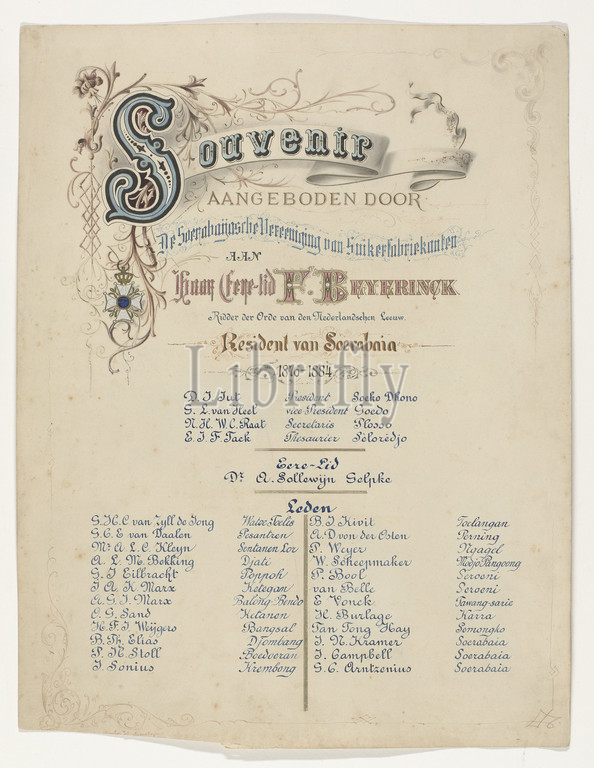 Souvenir
AANGEBODEN DOOR
De Soerabaijasche Vereeniging van Suikerfabriekanten
AAN
Haar Eere-lid F. BEYERINCK
Ridder der Orde van den Nederlandschen Leeuw.
Resident van Soerabaia
1876-1884
Librifly
D. J. Jut President Soeko Dhono
G. L. van Heel vice President Goedo
N. H. W. C. Raat Secretaris Plosso
E. J. F Tack Thesaurier Séloredjo
Eere-Lid
Dr. A. Sollewijn Gelpke
Leden
G. H. C van Zyll de Jong Watoe Toelis
G. C. E van Daalen Pesantren
Mr A. L. C. Kleyn Sentanen Lor
A. L. M. Bokking Djati
G. J Eilbracht Poppoh
J A. K. Marx Ketegan
A. G. J. Marx Balong-Bendo
C. G. Sand Ketanen
H. F. J Weijgers Bangsal
B. Th. Elias Djombang
P. N Stoll Boedoeran
J. Sonius Krembong
B. J. Kivit Toelangan
A. D van der Osten Perning
P. Weyer Ngagel
W. Scheepmaker Modjo Panggong
P. Bool Seroeni
van Belle Seroeni
E Vonck Tawang-sarie
H. Burlage Karra
Tan Tong Hay Pemongko
J. N. Kramer Soerabaia
J. Campbell Soerabaia
G. C. Arntzenius Soerabaia